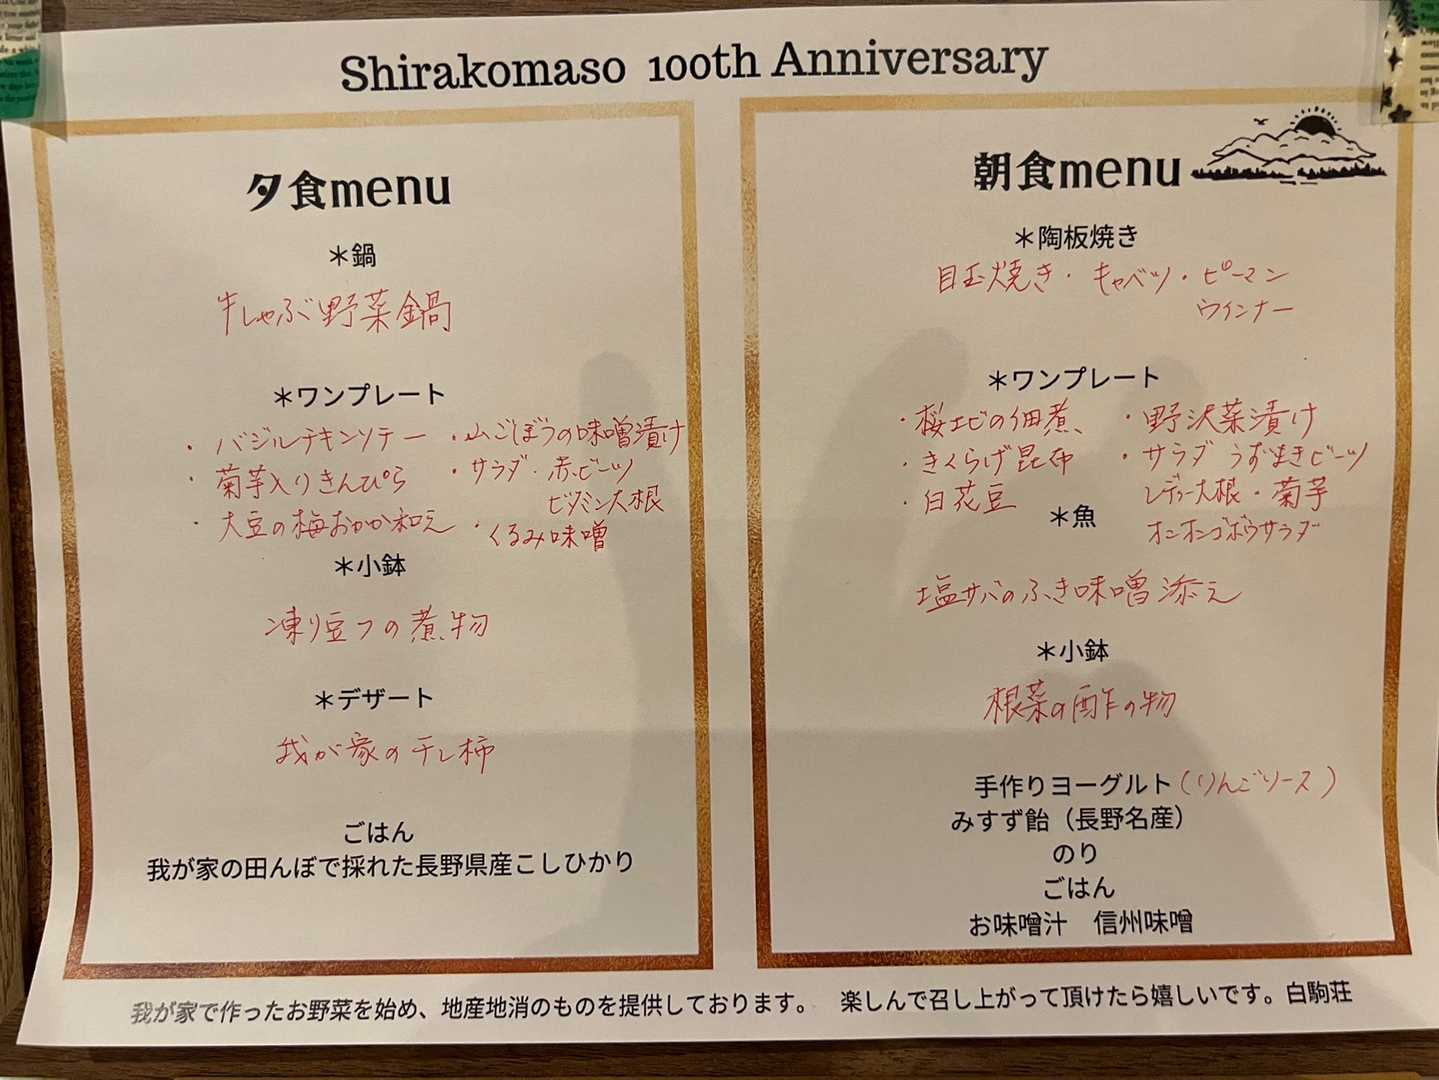 Shirakomaso 100th Anniversary
夕食menu
＊鍋
牛しゃぶ野菜鍋
＊ワンプレート
・バジルチキンソテー
・菊芋入りきんぴら
・大豆の梅おかか和え
・山ごぼうの味噌漬け
・サラダ・赤ビーツ
ビタミン大根
・くるみ味噌
＊小鉢
凍り豆フの煮物
＊デザート
我が家の干し柿
ごはん
我が家の田んぼで採れた長野県産こしひかり
朝食menu
＊陶板焼き
目玉焼き・キャベツ・ピーマン
ウインナー
＊ワンプレート
・桜エビの佃煮、
・きくらげ昆布
・白花豆
・野沢菜漬け
・サラダ うずまきビーツ
レディー大根・菊芋
ゴボウサラダ
＊魚
塩サバのふき味噌添え
＊小鉢
根菜の酢の物
手作りヨーグルト（りんごソース）
みすず飴（長野名産）
のり
ごはん
お味噌汁　信州味噌
我が家で作ったお野菜を始め、地産地消のものを提供しております。　楽しんで召し上がって頂けたら嬉しいです。白駒荘